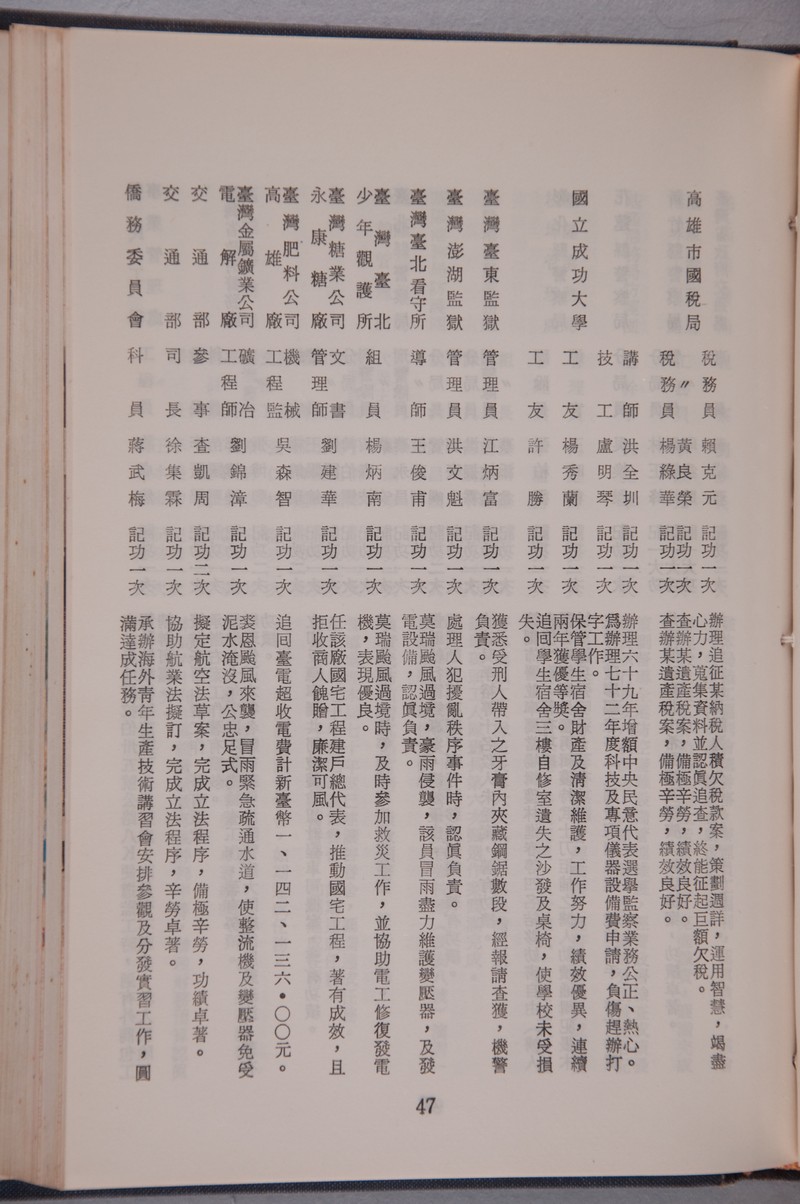 高雄市國稅局 稅務員 賴克元 記功一次 辦理追征某納稅人積欠稅款案,策劃週詳,運用智慧,竭盡
心力,蒐集資料並認眞追查,終能征起巨額欠稅。
〃 黃良榮 記功一次 查辦某遺產稅案,備極辛勞,績效良好。
稅務員 楊綠華 記功一次 查辦某遺產稅案,備極辛勞,績效良好。
國立成功大學 講師 洪全圳 記功一次 辦理六十九年增額中央民意代表選舉監察業務公正、熱心。
技工 盧明琴 記功一次 爲辦理七十二年度科技及專項儀器設備費申請,負傷趕辦打
字工作。
工友 楊秀蘭 記功一次 保管學生宿舍財產及清潔維護,工作努力,績效優異,連續
兩年獲優等獎。
工友 許勝 記功一次 追回學生宿舍三樓自修室遺失之沙發及桌椅,使學校未受損
失。
臺灣臺東監獄 管理員 江炳富 記功一次 獲悉受刑人帶入之牙膏內夾藏鋼鋸數段,經報請查獲,機警
負責。
臺灣澎湖監獄 管理員 洪文魁 記功一次 處理人犯擾亂秩序事件時,認眞負責。
臺灣臺北看守所 導師 王俊甫 記功一次 莫瑞颱風過境,豪雨侵襲,該員冒雨盡力維護變壓器,及發
電設備,認眞負責。
臺灣臺北
少年觀護所 組員 楊炳南 記功一次 莫瑞颱風過境時,及時參加救災工作,並協助電工修復發電
機,表現優良。
臺灣糖業公司
永康糖廠 文書
管理師 劉建華 記功一次 任該廠國宅工程建戶總代表,推動國宅工程,著有成效,且
拒收商人餽贈,廉潔可風。
臺灣肥料公司
高雄廠 機械
工程監 吳森智 記功一次 追回臺電超收電費計新臺幣一、一四二、一三六•〇〇元。
臺灣金屬鑛業公司
電解廠 礦冶
工程師 劉錦漳 記功一次 裘恩颱風來襲,冒雨緊急疏通水道,使整流機及變壓器免受
泥水淹沒,公忠足式。
交通部 參事 查凱周 記功二次 擬定航空法草案,完成立法程序,備極辛勞,功績卓著。
交通部 司長 徐集霖 記功一次 協助航業法擬訂,完成立法程序,辛勞卓著。
僑務委員會 科員 蔣武梅 記功一次 承辦海外青年生產技術講習會安排參觀及分發實習工作,圓
滿達成任務。
47